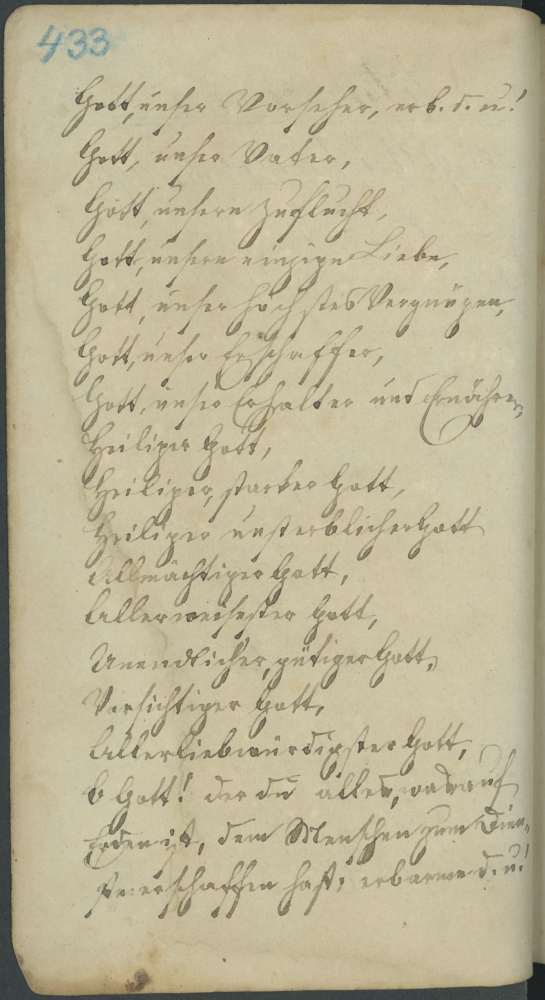 433
Gott, unser Vorseher, erb. d. u!
Gott, unser Vater,
Gott, unsere Zuflucht,
Gott, unsere einzige Liebe,
Gott, unser höchstes Vergnügen,
Gott, unser Erschaffer,
Gott, unser Erhalter und Ernährer,
Heiliger Gott,
Heiliger, starker Gott,
Heiliger unsterblicher Gott
Allmächtiger Gott,
Allerweisester Gott,
Unendlicher, gütiger Gott,
Vorsichtiger Gott,
Allerliebwürdigster Gott,
O Gott! der du alles, was auf
Erden ist, dem Menschen zum Dien-
ste erschaffen hast; erbarme d. u!